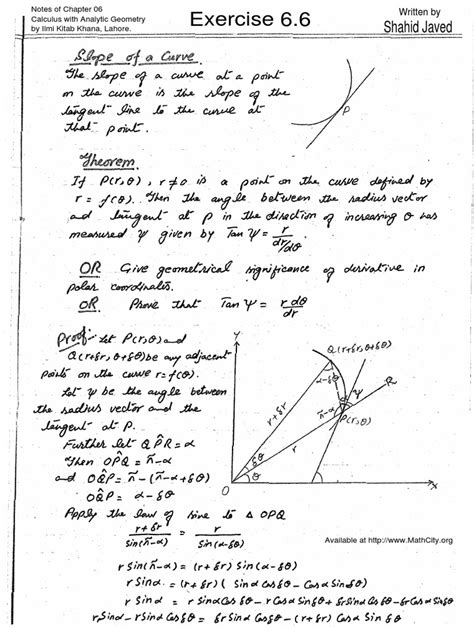 Notes of Chapter 06
Calculus with Analytic Geometry
by Ilmi Kitab Khana, Lahore.
Exercise 6.6
Written by
Shahid Javed
Slope of a Curve
The slope of a curve at a point
on the curve is the slope of the
tangent line to the curve at
that point.
P
Theorem
If P(r,θ), r≠0 is a point on the curve defined by
r = f(θ). Then the angle between the radius vector
and tangent at P in the direction of increasing θ has
measured ψ given by Tan ψ = r / dr/dθ
OR Give geometrical significance of derivative in
polar coordinates.
OR Prove that Tan ψ = r dθ / dr
Proof:- Let P(r,θ) and
Q(r+δr, θ+δθ) be any adjacent
points on the curve r=f(θ).
Let ψ be the angle between
the radius vector and the
tangent at P.
Further let QP̂R = α
Then OP̂Q = π-α
and OQ̂P = π-(π-α+δθ)
OQ̂P = α-δθ
Y
Q(r+δr, θ+δθ)
α-δθ
R
ψ
α
π-α
P(r,θ)
r+δr
r
δθ
θ
O
x
Apply the law of sine to Δ OPQ
r+δr / Sin(π-α) = r / Sin(α-δθ)
Available at http://www.MathCity.org
r Sin(π-α) = (r+δr) Sin(α-δθ)
r Sinα = (r+δr) ( Sinα Cosδθ - Cosα Sinδθ)
r Sinα = r Sinα Cosδθ - r Cosα Sinδθ + δr Sinα Cosδθ - δr Cosα Sinδθ
r Sinα - r Sinα Cosδθ = δr Sinα Cosδθ - (r+δr) Cosα Sinδθ